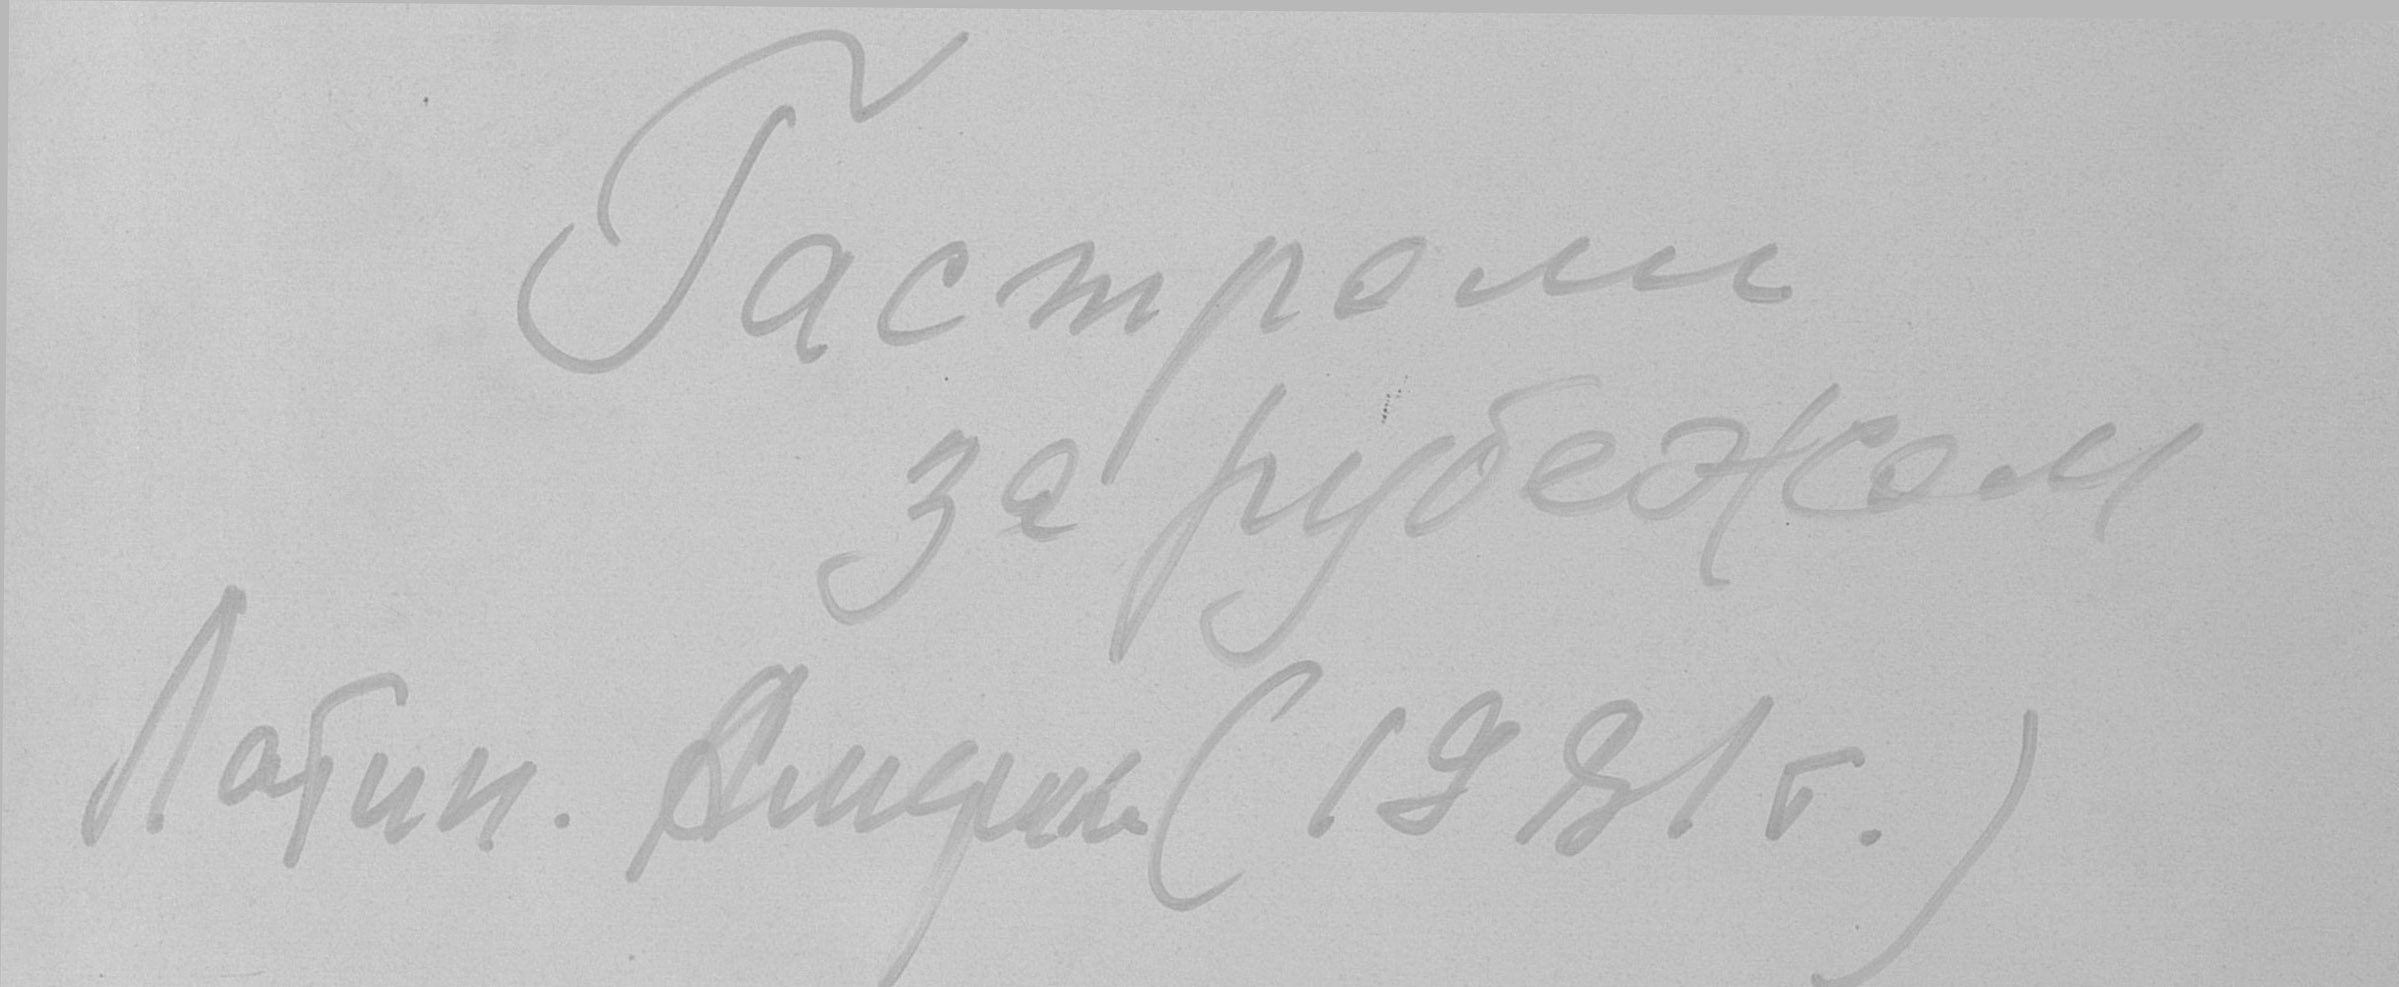 Гастроли
за рубежом
Латин. Америка (1981 г.)